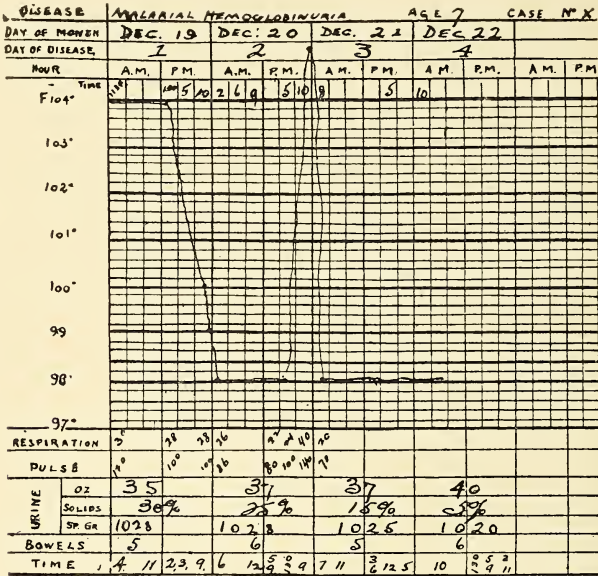 DISEASE MALARIAL HEMOGLOBINURIA AGE 7 CASE Nº X
DAY OF MONTH DEC. 19 DEC: 20 DEC. 21 DEC 22
DAY OF DISEASE, 1 2 3 4
HOUR A.M. P.M. A.M. P.M. A M. P.M. A M. P.M. A M P.M
TIME 5 10 2 6 9 5 10 8 5 10
F 104°
103°
102°
101°
100°
99
98
97°
RESPIRATION 28 28 26 40 20
PULSE 100 86 80 100 140 70
URINE OZ 35 37 37 40
SOLIDS 30% 25% 15% 5%
SP. GR 1028 1028 1025 1020
BOWELS 5 6 5 6
TIME 4 11 2,3,9, 6 12 9 7 11 12 5 10